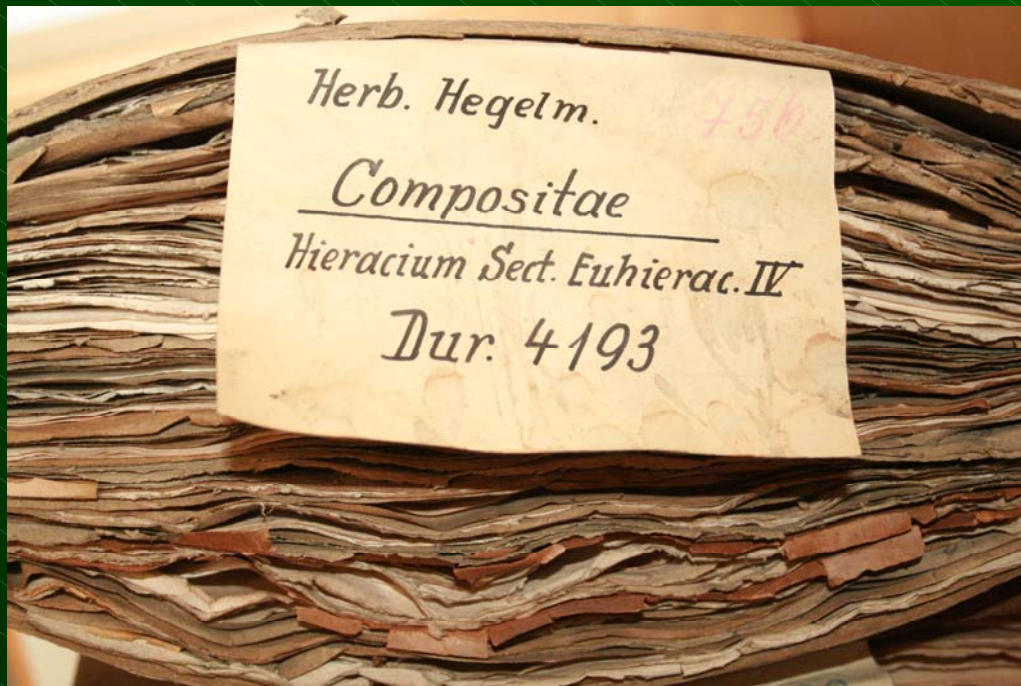 Herb. Hegelm. 756
Compositae
Hieracium Sect. Euhierac. IV
Dur. 4193